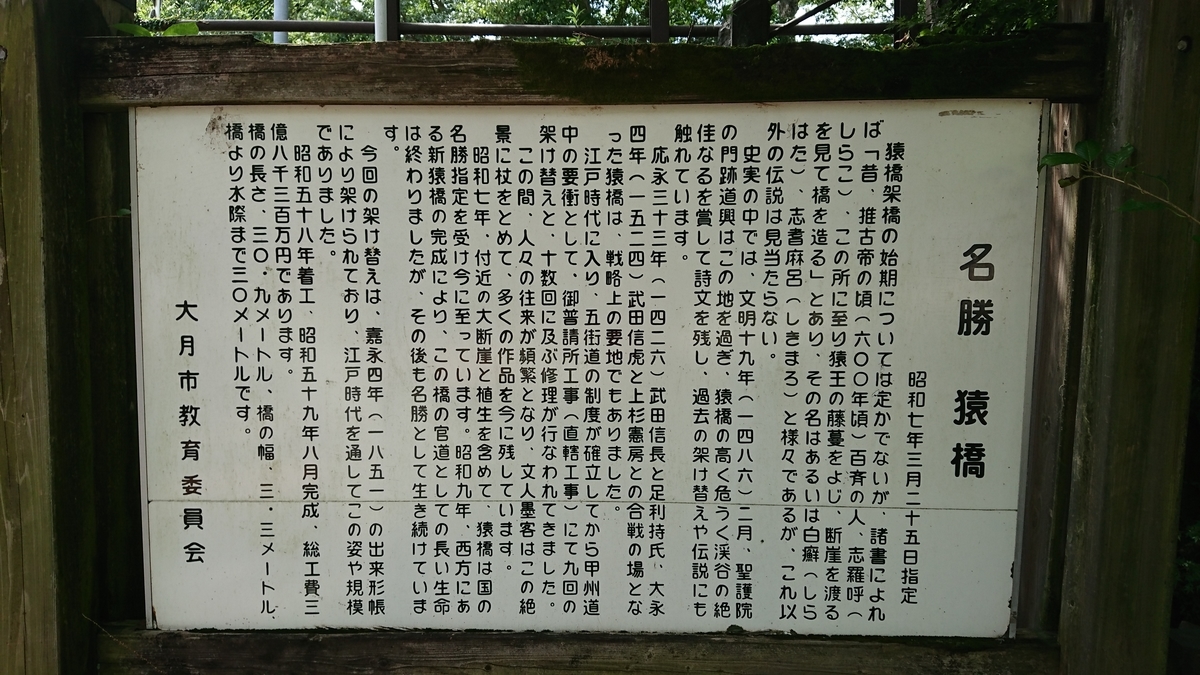 名勝 猿橋
昭和七年三月二十五日指定
猿橋架橋の始期については定かでないが、諸書によれ
ば「昔、推古帝の頃（六〇〇年頃）百斉の人、志羅呼（
しらこ）、この所に至り猿王の藤蔓をよじ、断崖を渡る
を見て橋を造る」とあり、その名はあるいは白癬（しら
はた）、志耆麻呂（しきまろ）と様々であるが、これ以
外の伝説は見当たらない。
史実の中では、文明十九年（一四八六）二月、聖護院
の門跡道興はこの地を過ぎ、猿橋の高く危うく渓谷の絶
佳なるを賞して詩文を残し、過去の架け替えや伝説にも
触れています。
応永三十三年（一四二六）武田信長と足利持氏、大永
四年（一五二四）武田信虎と上杉憲房との合戦の場とな
った猿橋は、戦略上の要地でもありました。
江戸時代に入り、五街道の制度が確立してから甲州道
中の要衝として、御普請所工事（直轄工事）にて九回の
架け替えと、十数回に及ぶ修理が行なわれてきました。
この間、人々の往来が頻繁となり、文人墨客はこの絶
景に杖をとめて、多くの作品を今に残しています。
昭和七年、付近の大断崖と植生を含めて、猿橋は国の
名勝指定を受け今に至っています。昭和九年、西方にあ
る新猿橋の完成により、この橋の官道としての長い生命
は終わりましたが、その後も名勝として生き続けていま
す。
今回の架け替えは、嘉永四年（一八五一）の出来形帳
により架けられており、江戸時代を通してこの姿や規模
でありました。
昭和五十八年着工、昭和五十九年八月完成、総工費三
億八千三百万円であります。
橋の長さ、三〇・九メートル、橋の幅、三・三メートル、
橋より水際まで三〇メートルです。
大月市教育委員会